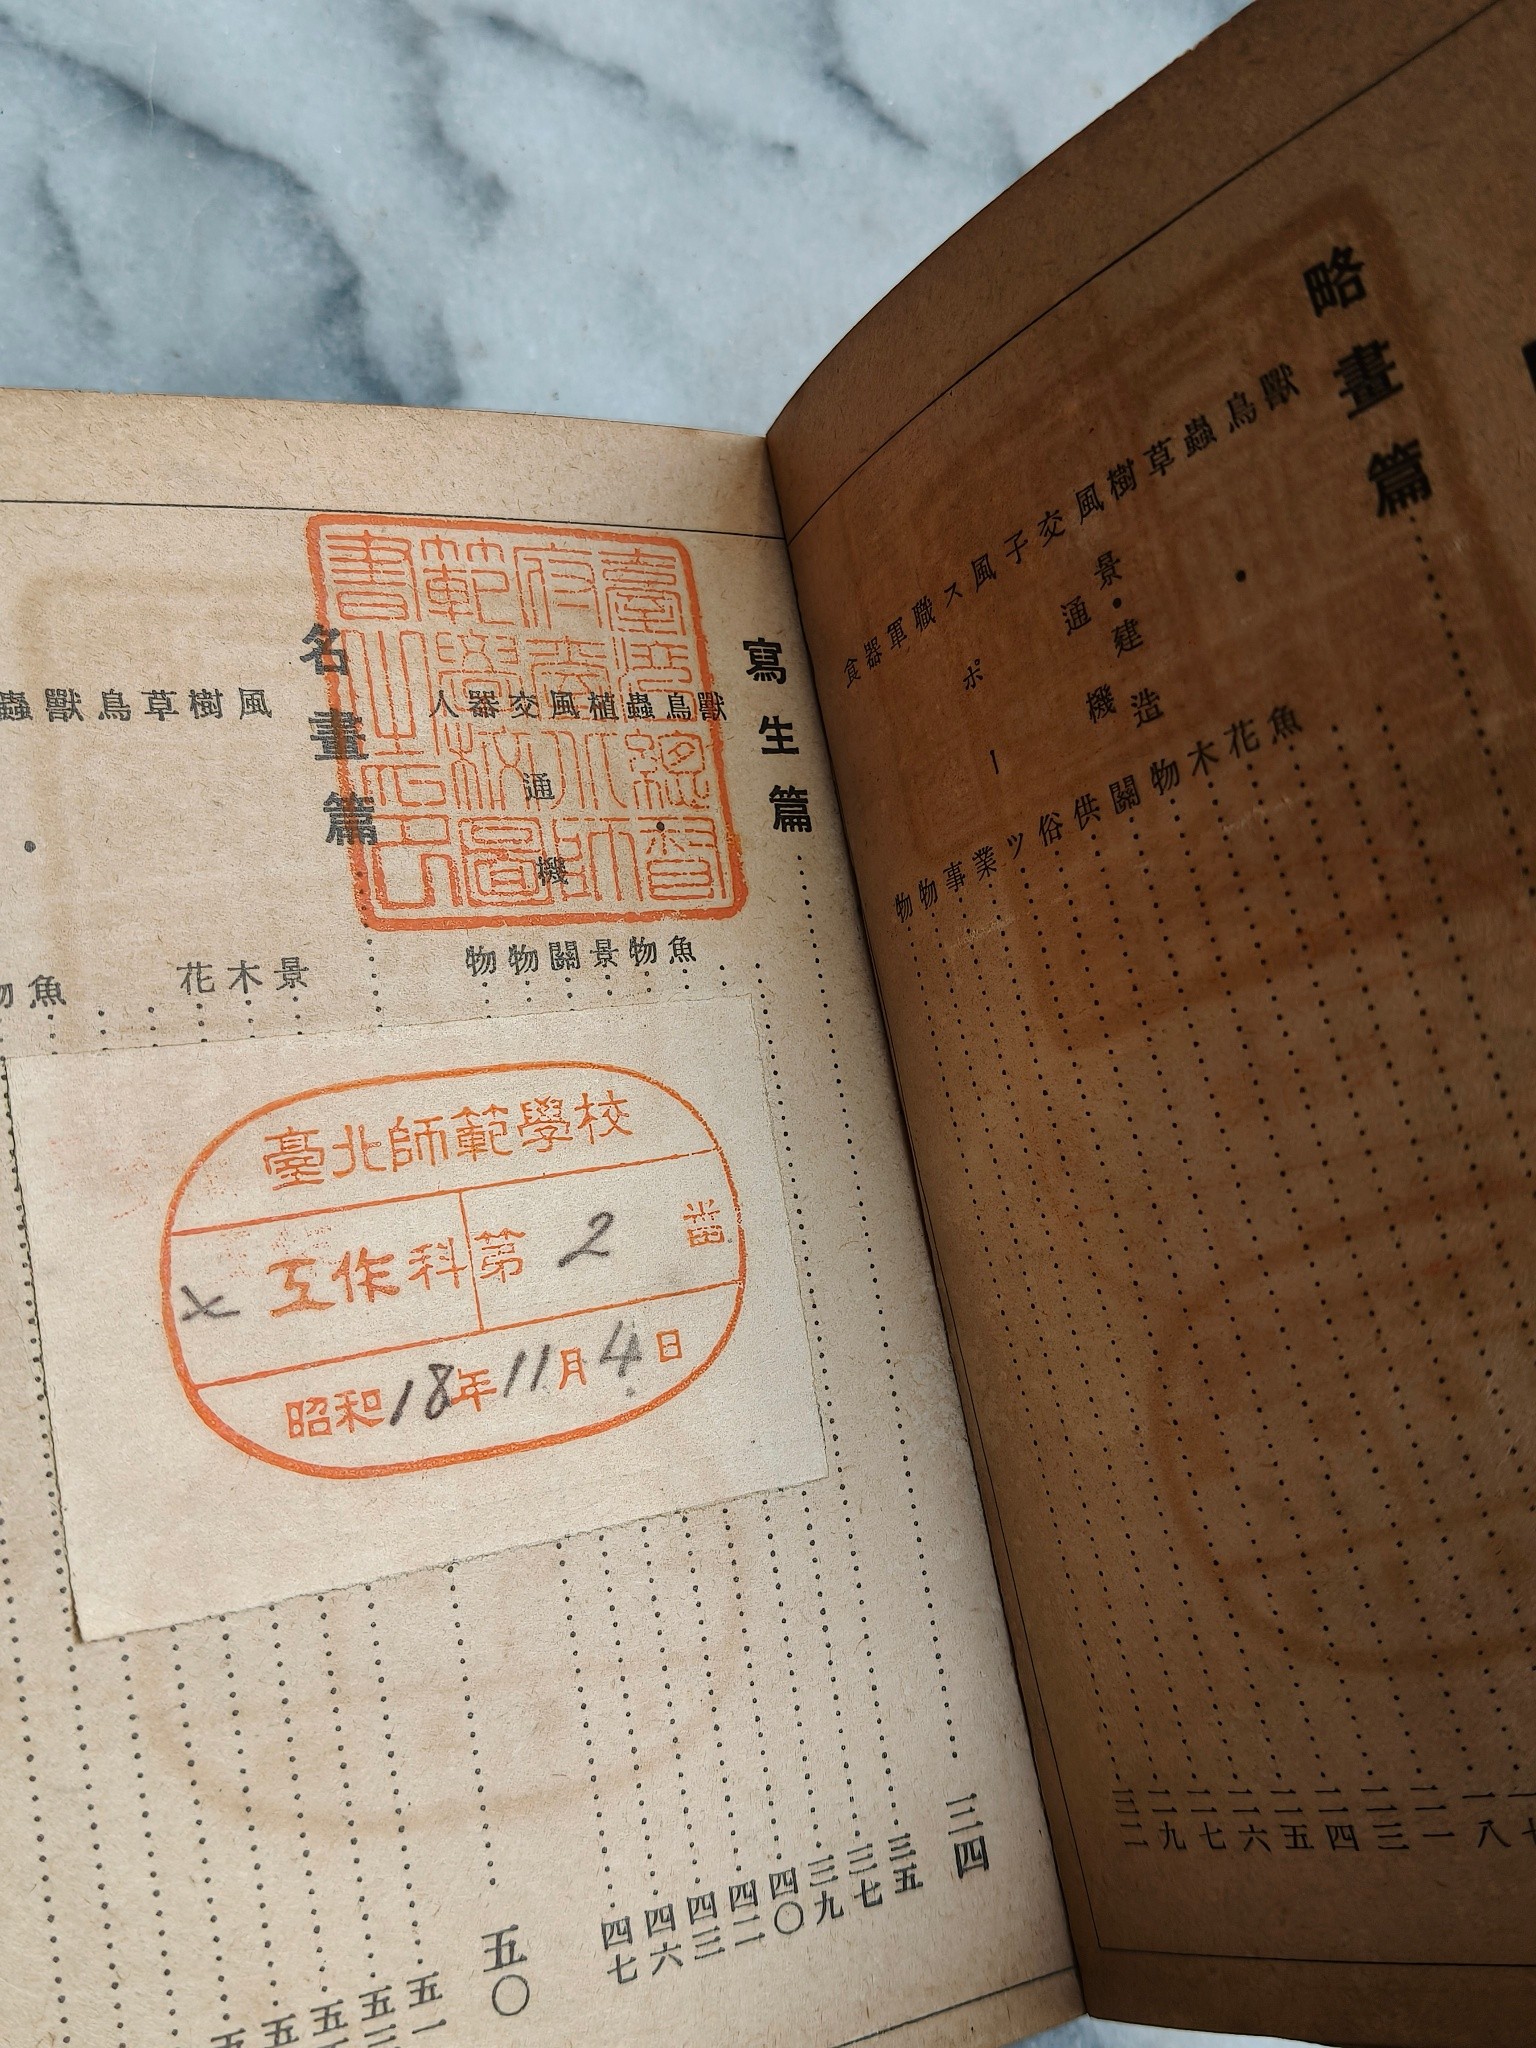 略畫篇
獸
鳥
蟲・魚
草花
樹木
風景・建造物 一八
交通機關 二一
子供 二三
風俗 二四
スポーツ 二五
職業 二六
軍事 二七
器物 二九
食物 三二
寫生篇 三四
獸 三五
鳥 三七
蟲・魚 三九
植物 四〇
風景 四二
交通機關 四三
器物 四六
人物 四七
名畫篇 五〇
風景 五一
樹木
草花
鳥
獸
蟲・魚
臺灣總督
府臺北師
範學校圖
書之
臺北師範學校
工作科 第 2 番
昭和18年11月4日